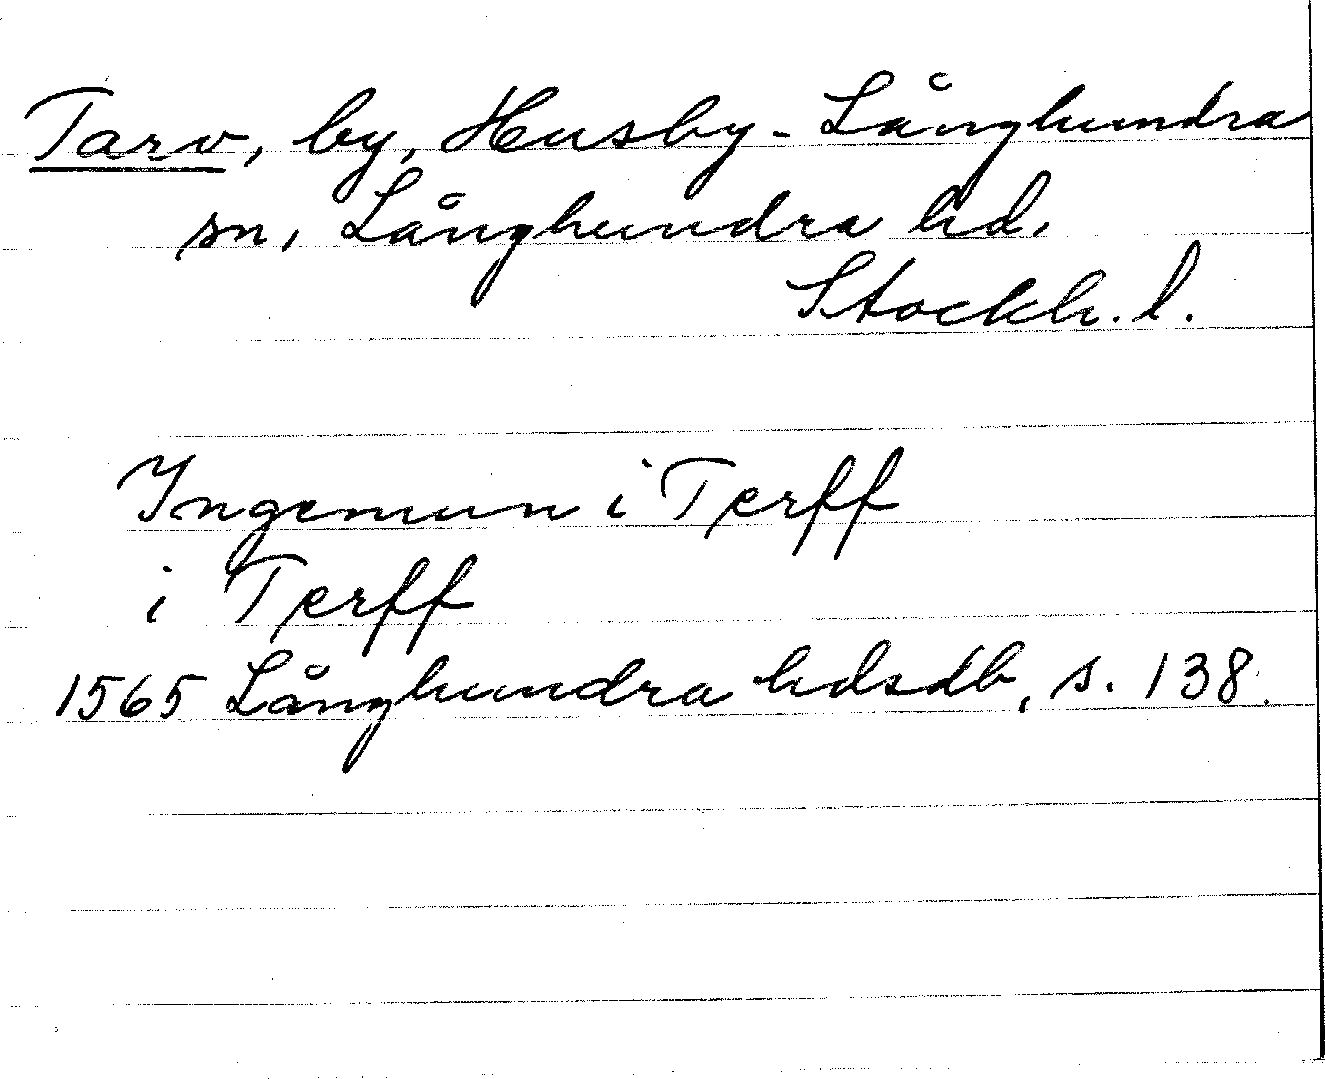 Tarv, by, Husby-Långhundra
sn, Långhundra hd,
Stockh. l.
Ingemun i Terff
i Terff
1565 Långhundra hdsdb, s. 138.